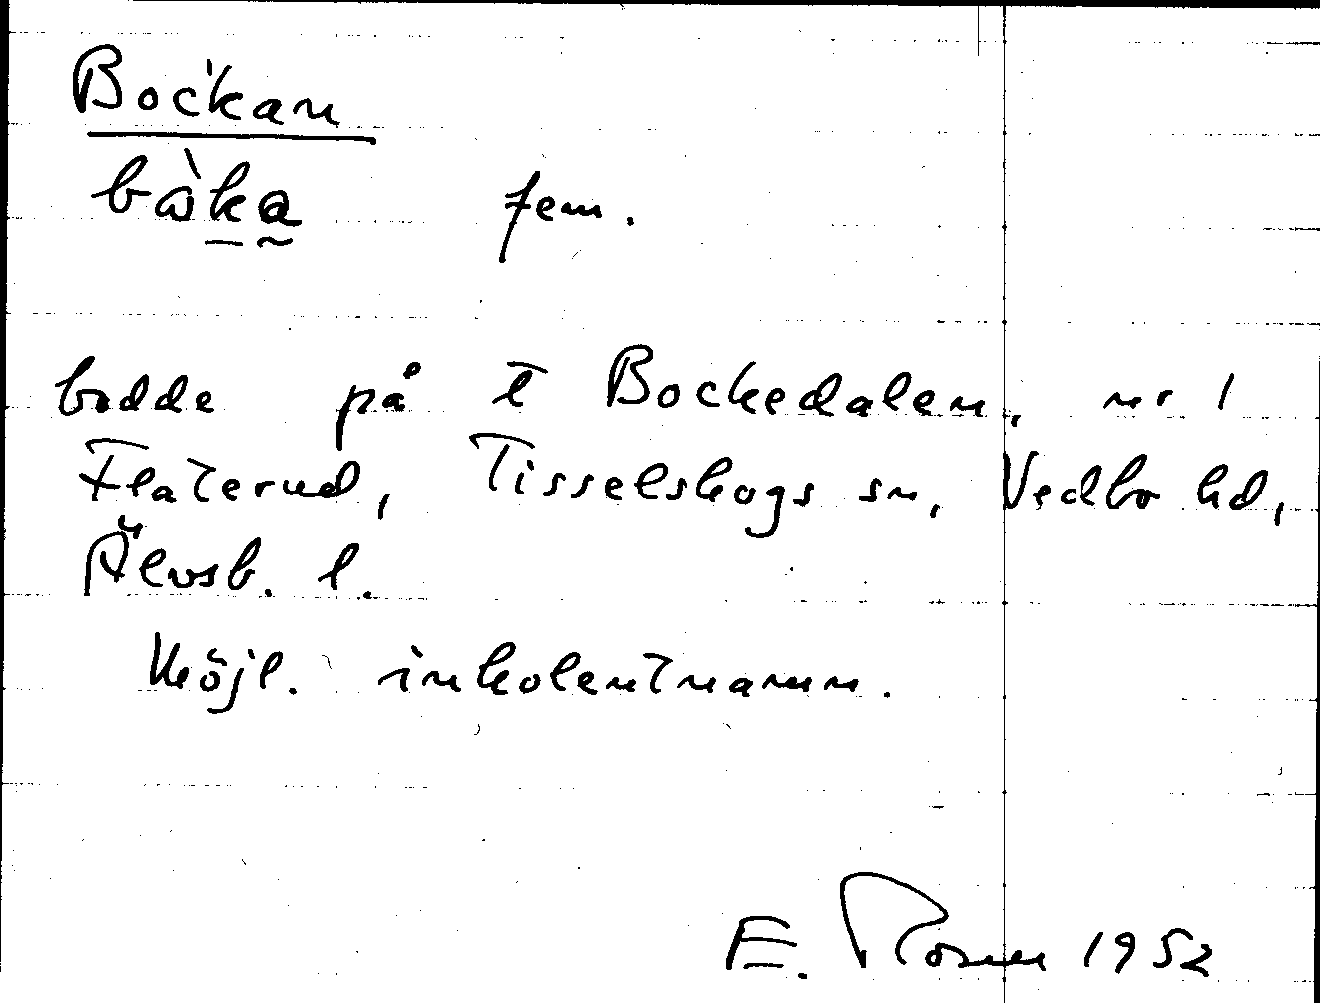 Bockan
båka fem.
bodde på t Bockedalen, nr 1
Flaterud, Tisselskogs sn, Vedbo hd,
Älvsb. l.
Möjl. inkolentnamn.
E. Rosen 1952